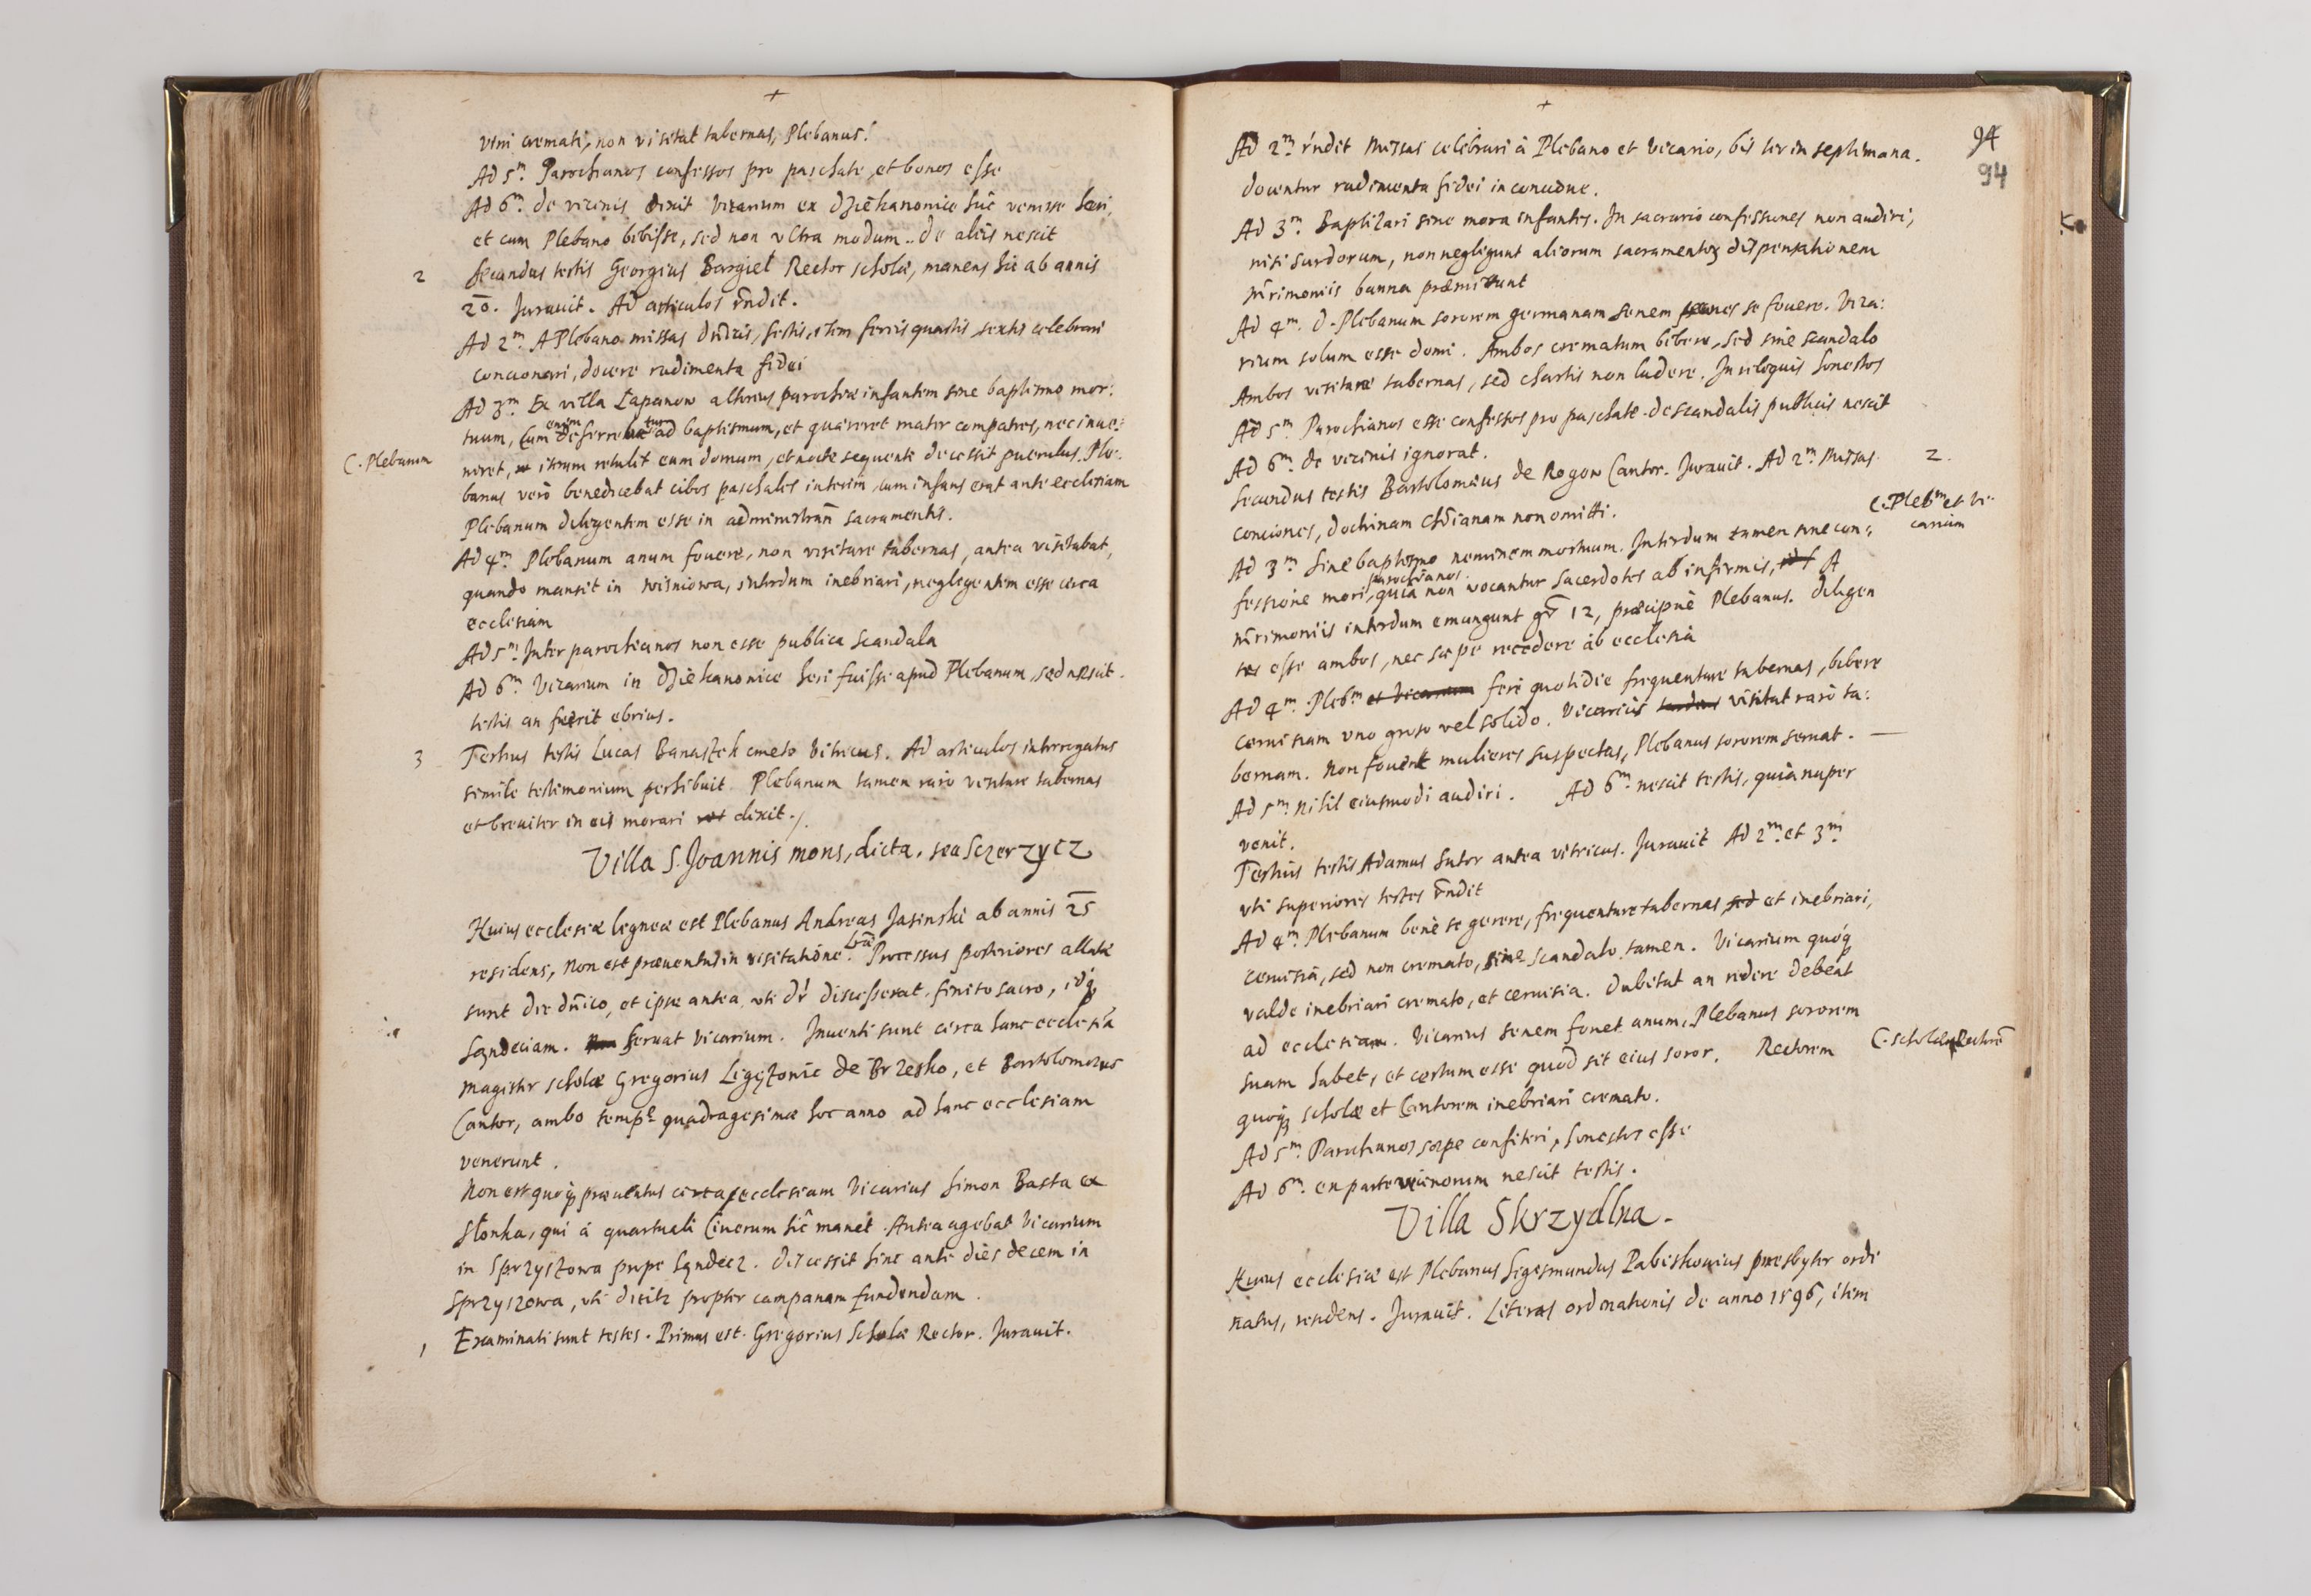 +
vini cremati, non visitat tabernas, Plebanus.
Ad 5m. Parochianos confessos pro paschate, et bonos esse
Ad 6m. de vicinis dixit Vicarium ex Dziekanowice huc venisse heri,
et cum Plebano bibisse, sed non vltra modum. de aliis nescit
2 Secundus testis Georgius Bargieł Rector scholæ, manens hic ab annis
20. Jurauit. Ad articulos rndit.
Ad 2m. A Plebano missas dnicis, festis, item feriis quartis, sextis celebrari
concionari, docere rudimenta fidei
Ad 3m. Ex villa Łapanow alterius parochiæ infantem sine baptismo mor:
tuum, Cum enim deferretur ad baptismum, et quæreret mater compatres, nec inue:
C. Plebanum
niret, iterum retulit eum domum, et nocte sequente decessit puerulus. Ple:
banus verò benedicebat cibos paschales interim, cum infans erat ante ecclesiam
Plebanum diligentem esse in administran sacramentis.
Ad 4m. Plebanum anum fouere, non visitare tabernas, antea visitabat,
quando mansit in wisniowa, interdum inebriari, negligentem esse circa
ecclesiam
Ad 5m. Inter parochianos non esse publica scandala
Ad 6m. Vicarium in Dziekanowice heri fuisse apud Plebanum, sed nescit
testis an fuerit ebrius.
3 Tertius testis Lucas Banaszek cmeto Vitricus. Ad articulos interrogatus
simile testimonium perhibuit. Plebanum tamen rarò visitare tabernas
et breuiter in eis morari dixit./.
Villa S. Joannis mons, dicta, seu Sczerzycz
Huius ecclesiæ ligneæ est Plebanus Andreas Jasinski ab annis 25
residens, Non est præuentus in visitatione. Lræ Processus posteriores allatæ
sunt die dnico, et ipse antea, vti dr discesserat, finito sacro, idq
Sandeciam. Seruat Vicarium. Inuenti sunt circa hanc ecclesia
magister scholæ Gregorius Ligęzowic de Brzesko, et Bartolomæus
Cantor, ambo tempe quadragesimæ hoc anno ad hanc ecclesiam
venerunt.
Non est quoq præuentus circa ecclesiam Vicarius Simon Basta ex
Słonka, qui à quartueli Cinerum hic manet. Antea agebat Vicarium
in Sprzyszowa prope Sandecz. Discessit hinc ante dies decem in
Sprzyszowa, vti dicitr propter campanam fundendam.
1 Examinati sunt testes. Primus est. Gregorius Scholæ Rector. Jurauit.
+
94
94
Ad 2m. rndit Missas celebrari à Plebano et Vicario, bis ter in septimana.
docentur rudimenta fidei in concione.
Ad 3m. Baptizari sine mora infantes. In sacrario confessiones non audiri,
nisi surdorum, non negligunt aliorum sacramentoꝝ dispensationem
mrimoniis banna præmittunt
Ad 4m. d. Plebanum sororem germanam senem penes se fouere. Vica:
rium solum esse domi. Ambos crematum bibere, sed sine scandalo
Ambos visitare tabernas, sed chartis non ludere. In eloquiis honestos
Ad 5m. Parochianos esse confessos pro paschate. de scandalis publicis nescit
Ad 6m. de vicinis ignorat.
Secundus testis Bartolomæus de Rogow Cantor. Jurauit. Ad 2m. Missas 2.
conciones, doctrinam chrianam non omitti.
C. Plebm et Vi
carium
Ad 3m. Sine baptismo neminem mortuum. Interdum tamen sine con:
fessione mori parochianos, quia non vocantur sacerdotes ab infirmis, A
mrimoniis interdum emungunt gr 12, præcipuè Plebanus. diligen
tes esse ambos, nec sæpe recedere ab ecclesia
Ad 4m. Plebm et Vicarium ferè quotidie frequentare tabernas, bibere
ceruisiam vno groso vel solido. Vicarius visitat rarò ta:
bernam. Non fouent mulieres suspectas, Plebanus sororem seruat.
Ad 5m nihil eiusmodi audiri. Ad 6m. nescit testis, quia nuper
venit.
Tertius testis Adamus Sutor antea vitricus. Jurauit Ad 2m. et 3m.
vti superiores testes rndit
Ad 4m. Plebanum benè se gerere, frequentare tabernas sed et inebriari,
ceruisia, sed non cremato, sine scandalo tamen. Vicarium quoq
valde inebriari cremato, et ceruisia. dubitat an ridere debeat
ad ecclesiam. Vicarius senem fouet anum, Plebanus sororem
suam habet, et certum esse quod sit eius soror. Rectorem
C. scholæ Rectore
quoq scholæ et Cantorem inebriari cremato.
Ad 5m. Parochianos sæpe confiteri, honestos esse
Ad 6m. ex parte vicinorum nescit testis.
Villa Skrzydlna.
Huius ecclesiæ est Plebanus Sigismundus Pabiskouius presbyter ordi
natus, residens. Jurauit. Literas ordinationis de anno 1596, item